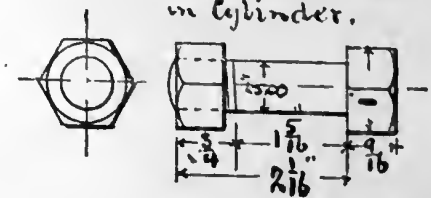 in Cylinder.
3/4
1 5/16"
9/16
2 1/16"